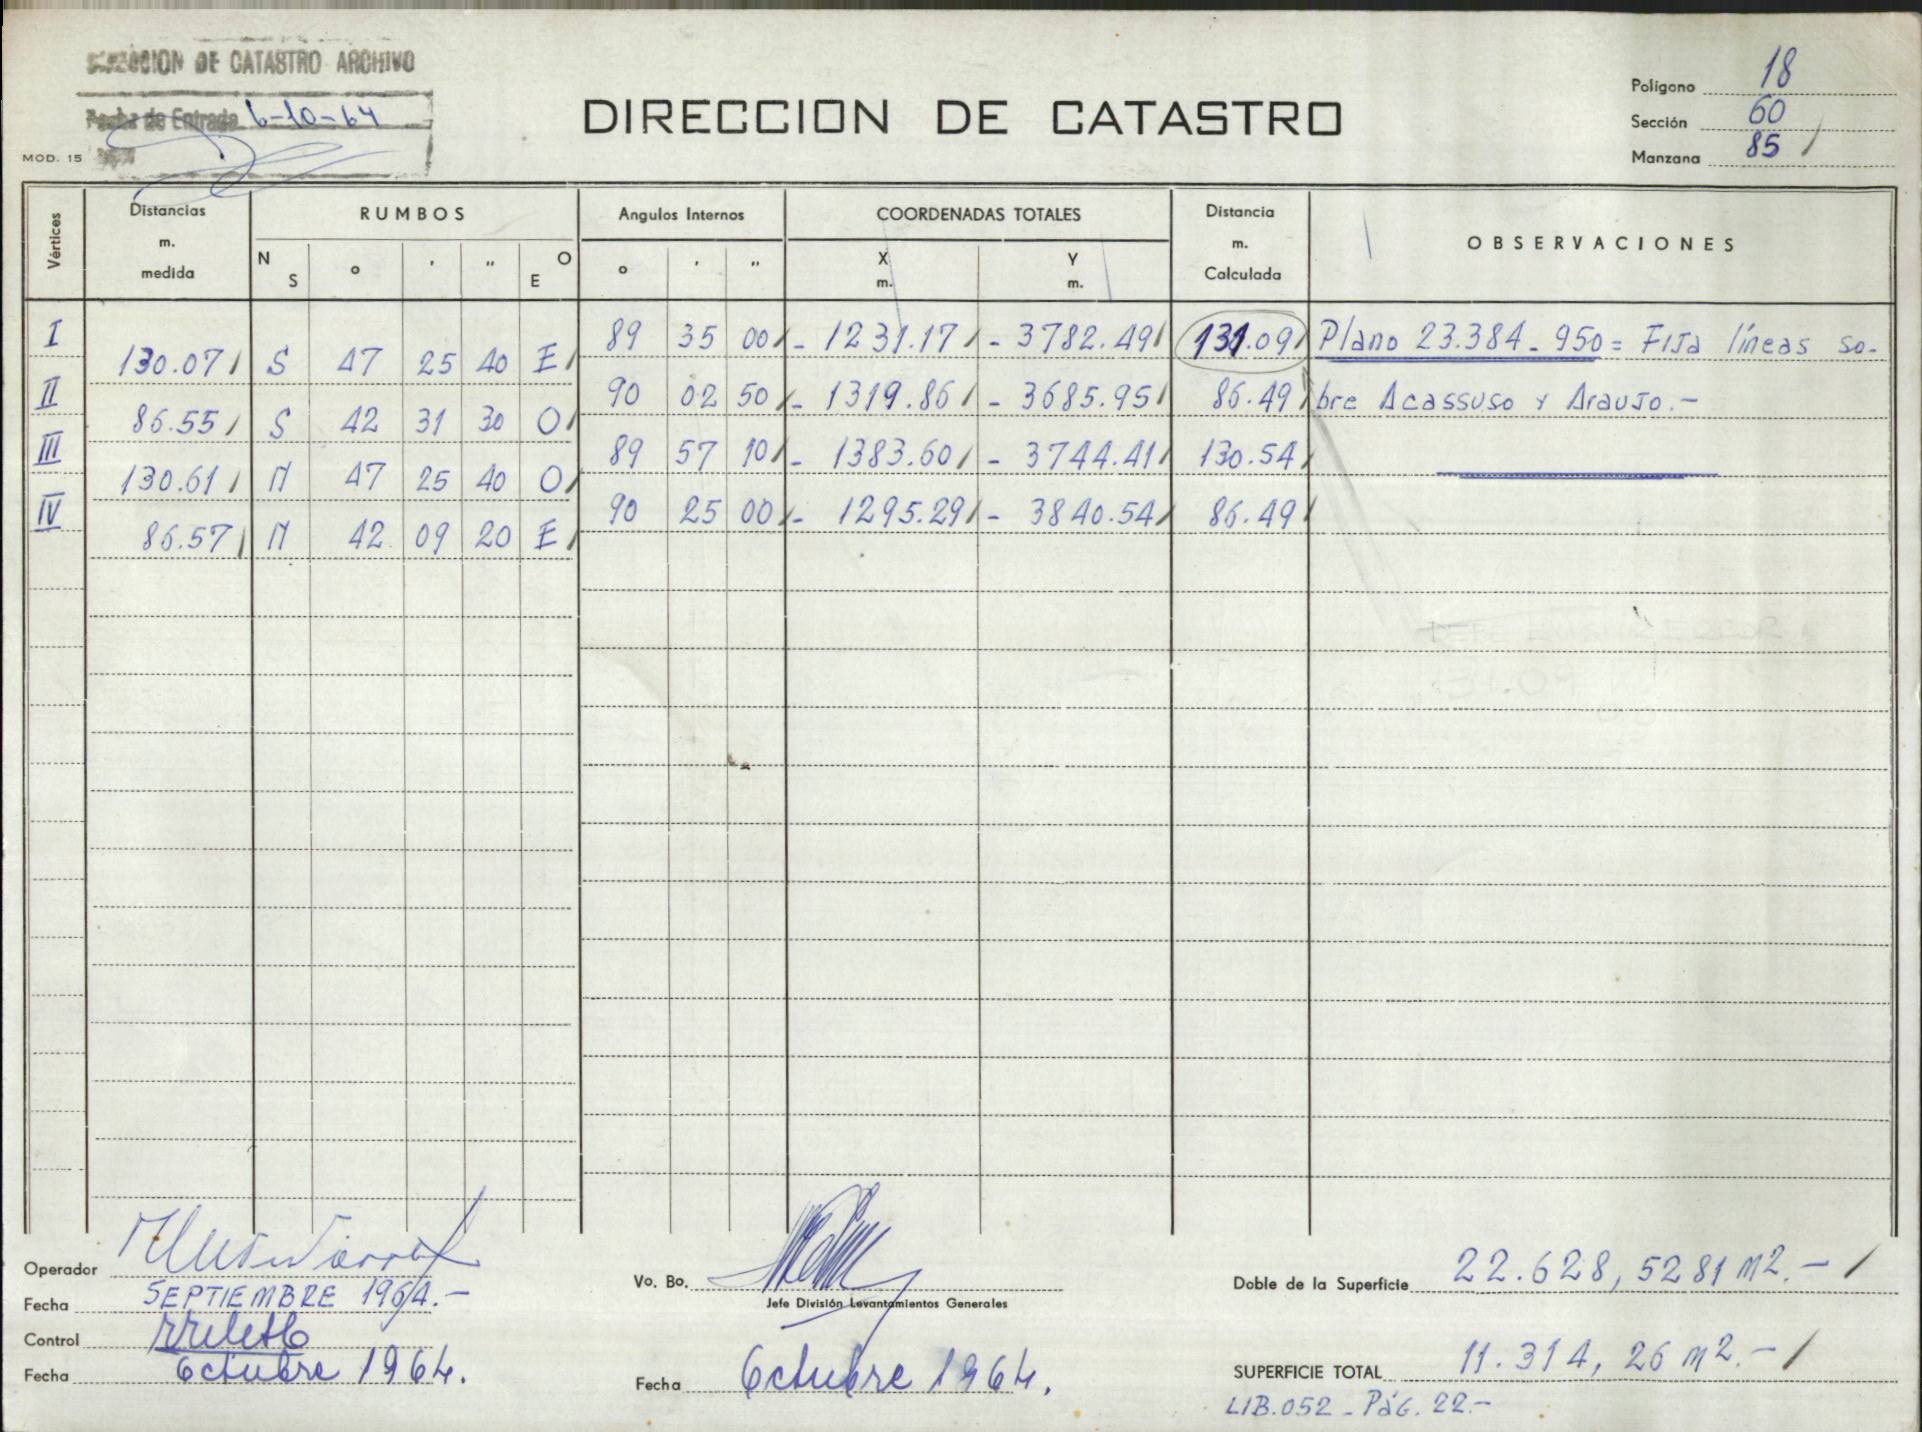 DIRECCION DE CATASTRO ARCHIVO
Fecha de Entrada 6-10-64
MOD. 15
DIRECCION DE CATASTRO
Polígono 18
Sección 60
Manzana 85
Vértices
Distancias m. medida
RUMBOS
N S ° ' " O E
Angulos Internos
° ' "
COORDENADAS TOTALES
X m. Y m.
Distancia m. Calculada
OBSERVACIONES
I 89 35 00 - 1231.17 - 3782.49 131.09 Plano 23.384-950= Fija líneas so-
130.07 S 47 25 40 E
II 90 02 50 - 1319.86 - 3685.95 86.49 bre Acassuso y Araujo.-
86.55 S 42 31 30 O
III 89 57 10 - 1383.60 - 3744.41 130.54
130.61 N 47 25 40 O
IV 90 25 00 - 1295.29 - 3840.54 86.49
86.57 N 42 09 20 E
Operador
Fecha SEPTIEMBRE 1964.-
Control
Fecha Octubre 1964.
Vo. Bo.
Jefe División Levantamientos Generales
Fecha Octubre 1964.
Doble de la Superficie 22.628,5281 m2.-
SUPERFICIE TOTAL 11.314,26 m2.-
LIB.052 - Pág. 22.-